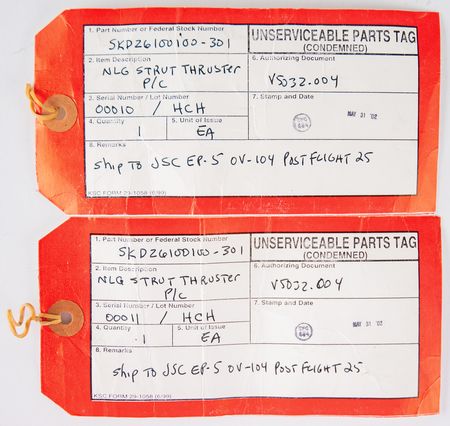 1. Part Number or Federal Stock Number
SKD26100100-301
UNSERVICEABLE PARTS TAG
(CONDEMNED)
2. Item Description
NLG STRUT THRUSTER
P/C
6. Authorizing Document
V5032.004
3. Serial Number / Lot Number
00010 / HCH
7. Stamp and Date
MAY 31 '02
4. Quantity
1
5. Unit of Issue
EA
8. Remarks
Ship to JSC EP-5 OV-104 POST FLIGHT 25
KSC FORM 29-1058 (6/99)
1. Part Number or Federal Stock Number
SKD26100100-301
UNSERVICEABLE PARTS TAG
(CONDEMNED)
2. Item Description
NLG STRUT THRUSTER
P/C
6. Authorizing Document
V5032.004
3. Serial Number / Lot Number
00011 / HCH
7. Stamp and Date
MAY 31 '02
4. Quantity
1
5. Unit of Issue
EA
8. Remarks
Ship to JSC EP-5 OV-104 POST FLIGHT 25
KSC FORM 29-1058 (6/99)